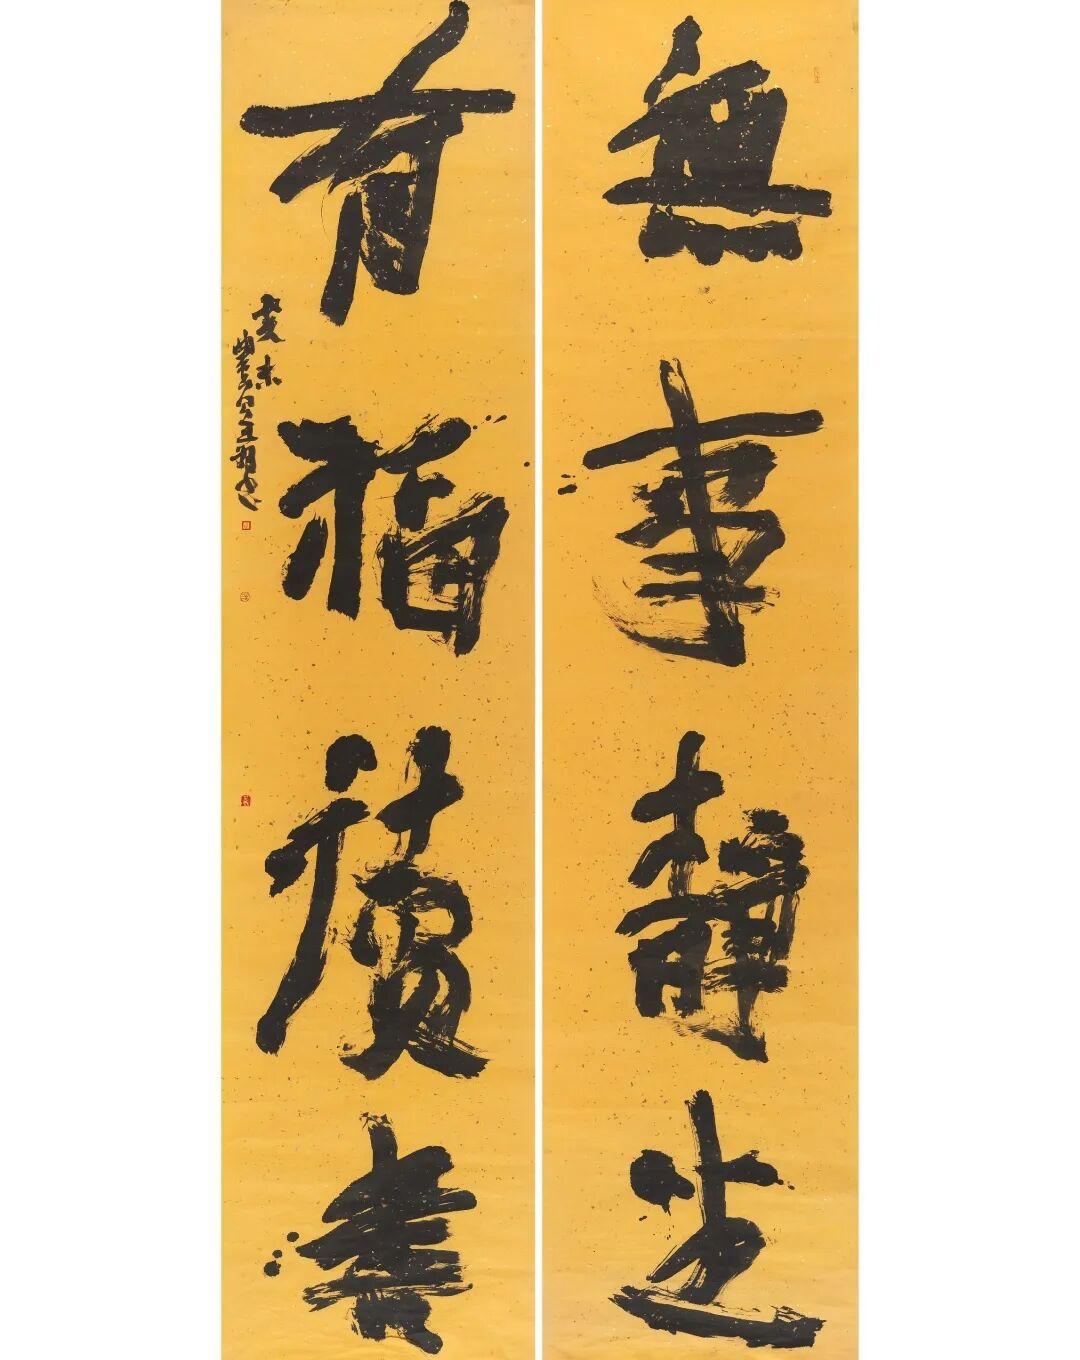 無事靜坐
有福讀書
癸未